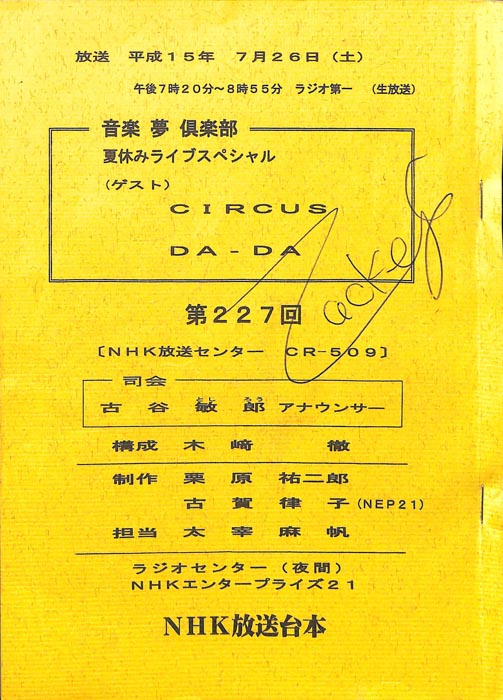 放送 平成15年 7月26日(土)
午後7時20分~8時55分 ラジオ第一 (生放送)
音楽 夢 倶楽部
夏休みライブスペシャル
(ゲスト)
CIRCUS
DA-DA
第227回
〔NHK放送センター CR-509〕
司会
古谷 敏郎 アナウンサー
構成 木﨑 徹
制作 栗原 祐二郎
古賀 律子 (NEP21)
担当 太宰 麻帆
ラジオセンター(夜間)
NHKエンタープライズ21
NHK放送台本